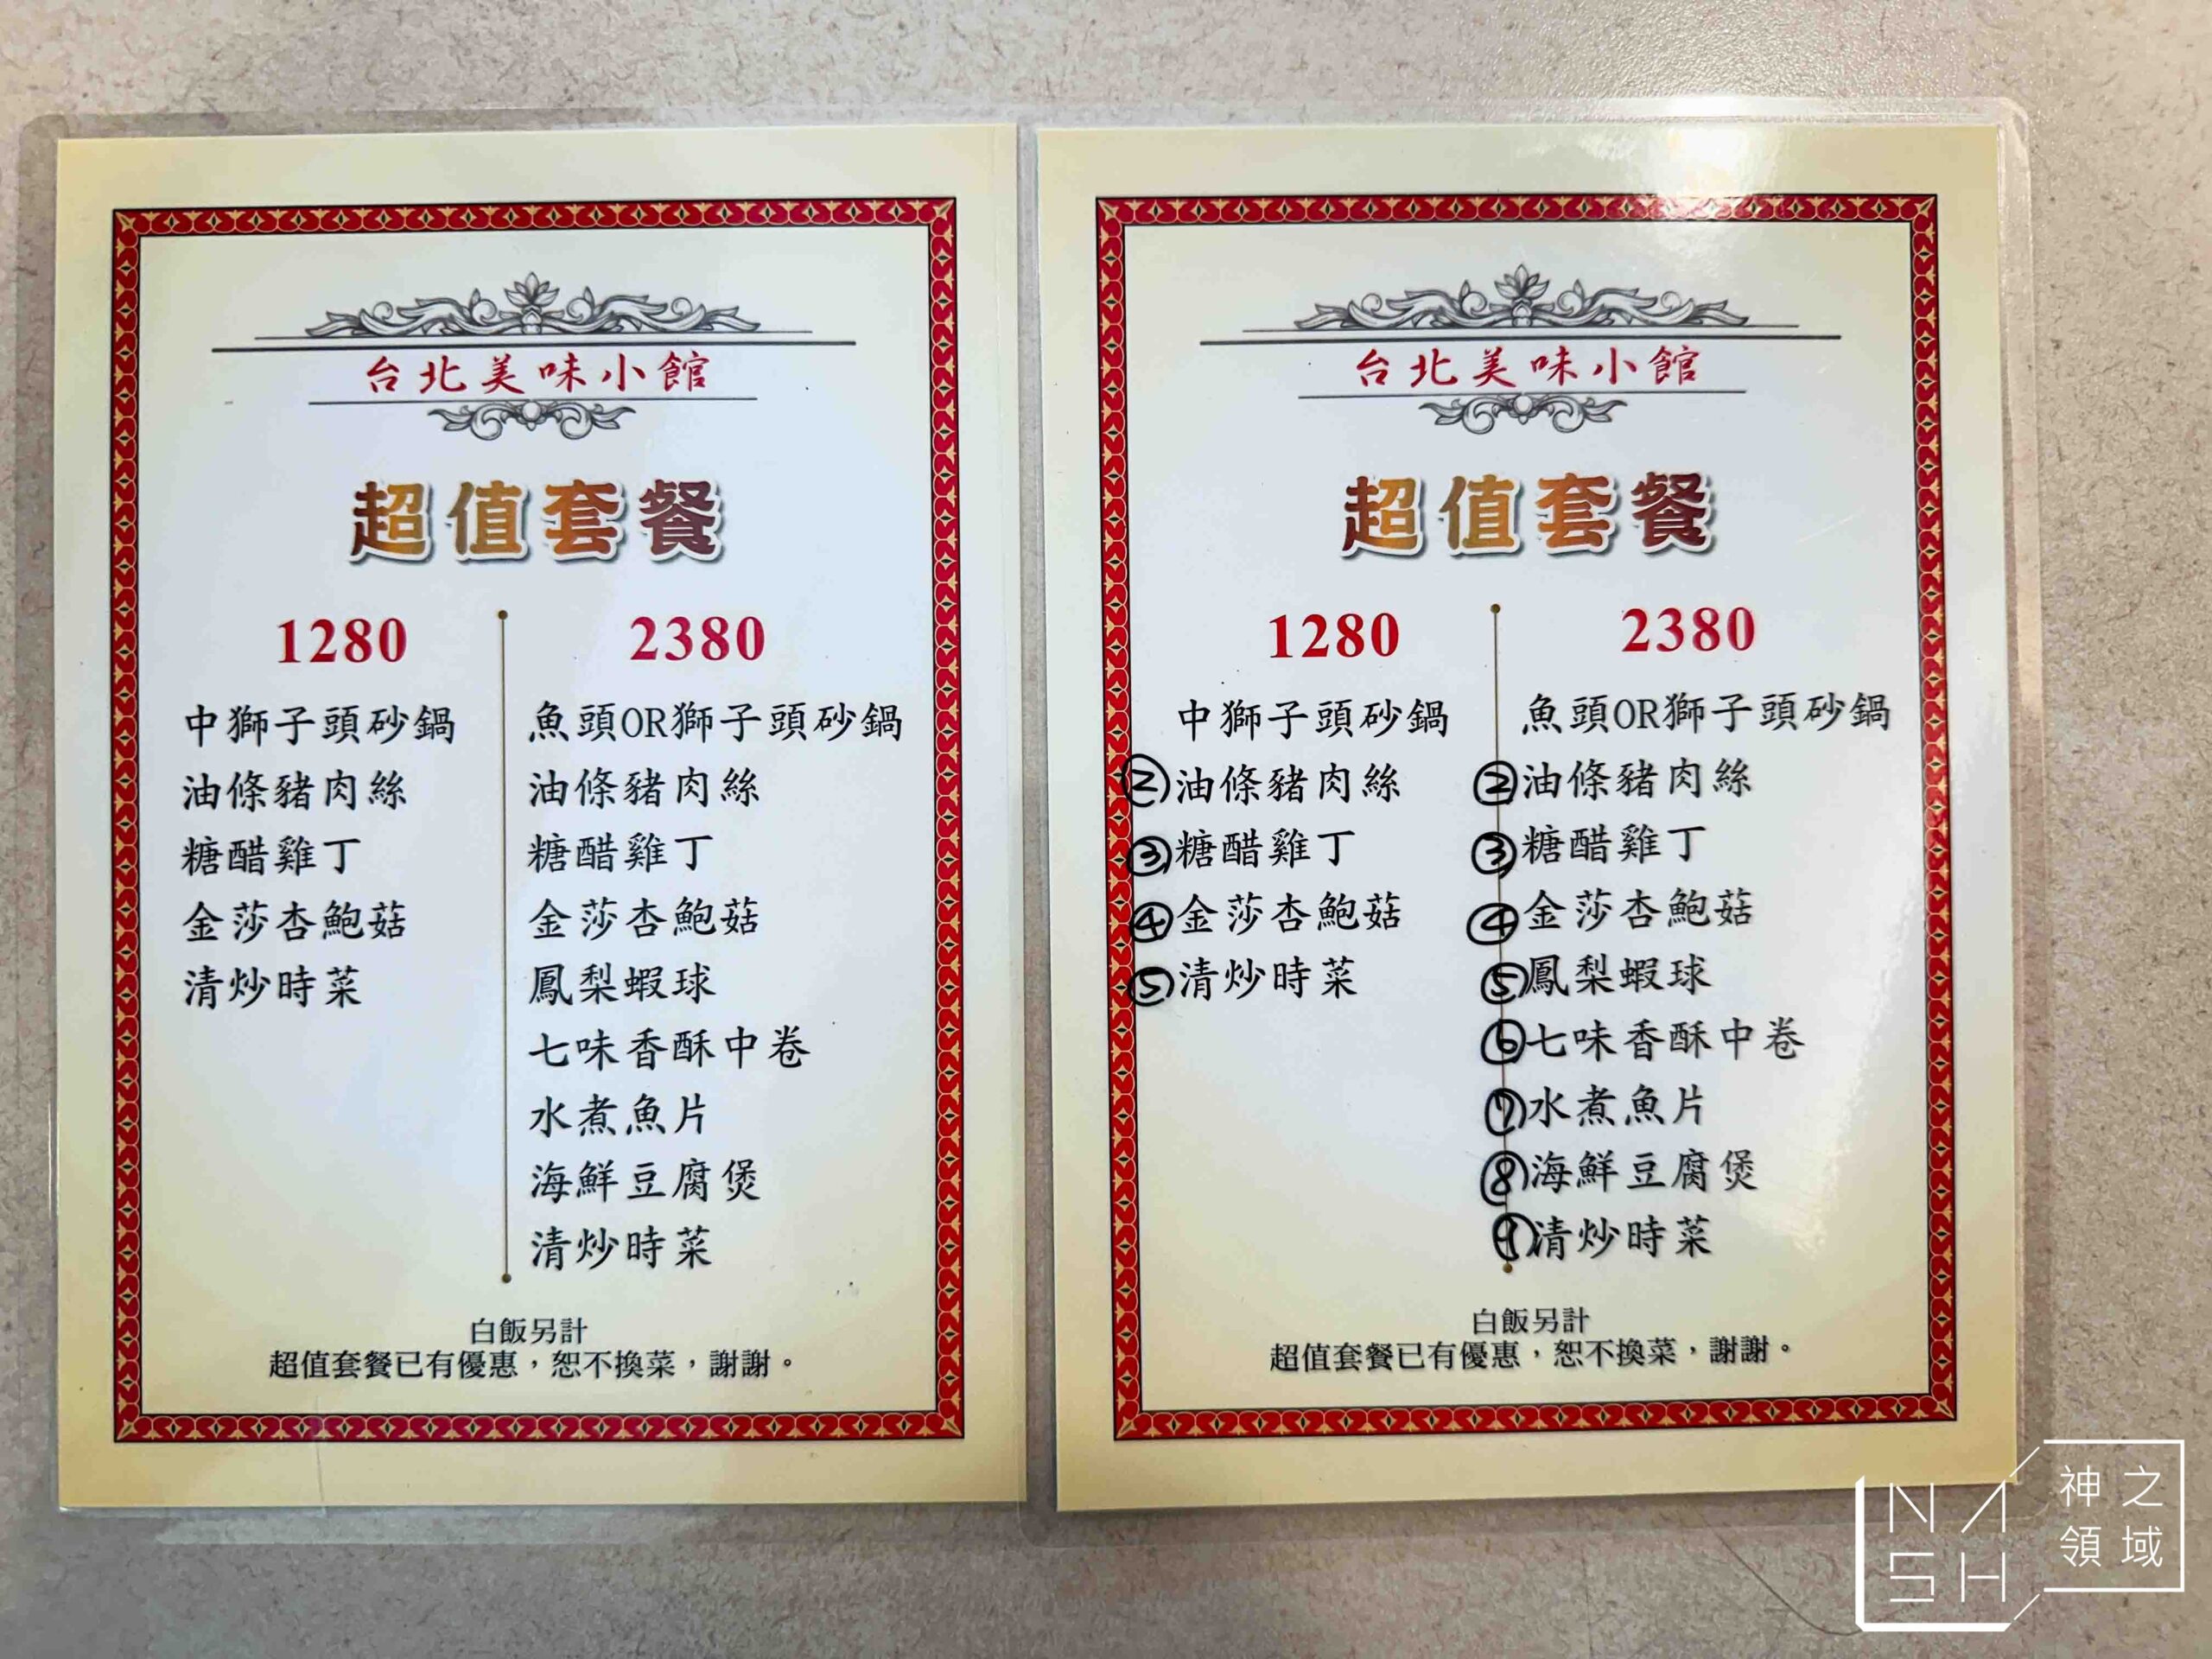 台北美味小館
超值套餐
1280
中獅子頭砂鍋
油條豬肉絲
糖醋雞丁
金莎杏鮑菇
清炒時菜
2380
魚頭OR獅子頭砂鍋
油條豬肉絲
糖醋雞丁
金莎杏鮑菇
鳳梨蝦球
七味香酥中卷
水煮魚片
海鮮豆腐煲
清炒時菜
白飯另計
超值套餐已有優惠，恕不換菜，謝謝。
台北美味小館
超值套餐
1280
中獅子頭砂鍋
②油條豬肉絲
③糖醋雞丁
④金莎杏鮑菇
⑤清炒時菜
2380
魚頭OR獅子頭砂鍋
②油條豬肉絲
③糖醋雞丁
④金莎杏鮑菇
⑤鳳梨蝦球
⑥七味香酥中卷
⑦水煮魚片
⑧海鮮豆腐煲
⑨清炒時菜
白飯另計
超值套餐已有優惠，恕不換菜，謝謝。
NASH
神之領域